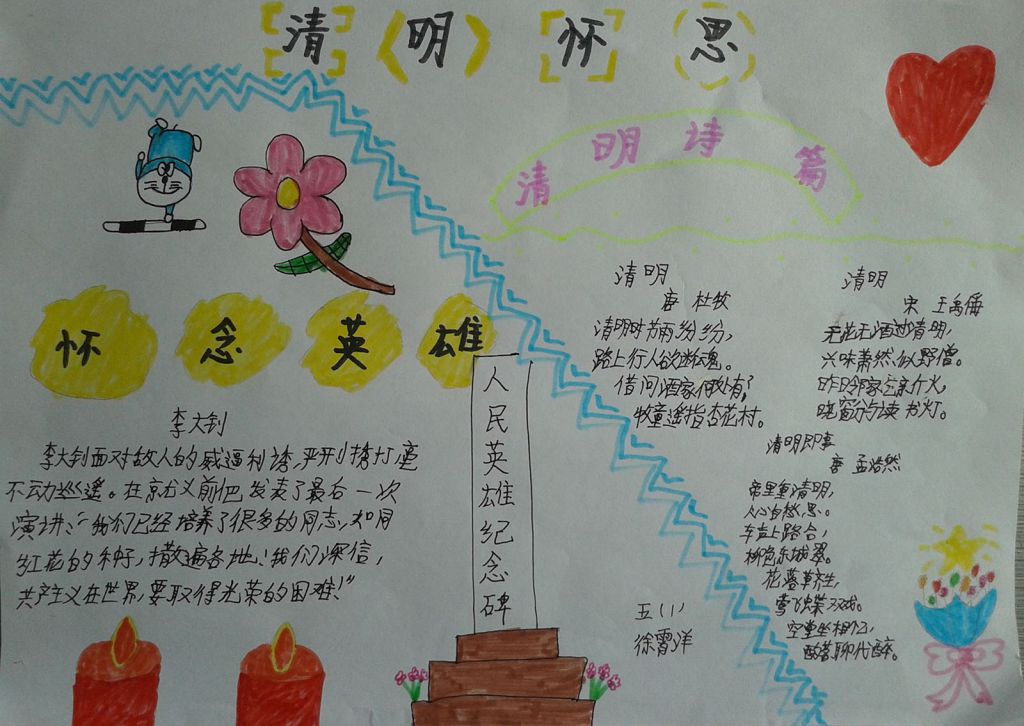 清明怀思
清明诗篇
怀念英雄
李大钊
李大钊面对敌人的威逼利诱,严刑拷打毫
不动摇。在京就义前他发表了最后一次
演讲:“我们已经培养了很多的同志,如同
红花的种子,撒遍各地!我们深信,
共产主义在世界,要取得光荣的困难!”
人民英雄纪念碑
清明
唐 杜牧
清明时节雨纷纷,
路上行人欲断魂。
借问酒家何处有?
牧童遥指杏花村。
清明
宋 王禹偁
无花无酒过清明,
兴味萧然似野僧。
昨日邻家乞新火,
晓窗分与读书灯。
清明即事
唐 孟浩然
帝里重清明,
人心自愁思。
车声上路合,
柳色东城翠。
花落草齐生,
莺飞蝶双戏。
空堂坐相忆,
酌茗聊代醉。
五(1)
徐霄洋